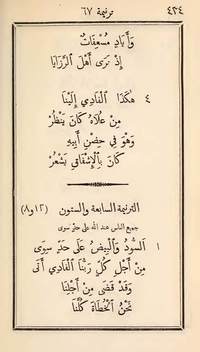 ٤٣٤ ترنيمة ٦٧
وَأَيَادٍ مُسْعِفَاتٌ
إِذْ تَرَى أَهْلَ ٱلرَّزَايَا
٤ هٰكَذَا ٱلْفَادِي إِلَيْنَا
مِنْ عُلَاهُ كَانَ يَنْظُرْ
وَهْوَ فِي حِضْنِ أَبِيهِ
كَانَ بِٱلْإِشْفَاقِ يَشْعُرْ
الترنيمة السابعة والستون (١٢ و٨)
جميع الناس عند الله على حدٍّ سوى
١ اَلسُّودُ وَٱلْبِيضُ عَلَى حَدٍّ سِوَى
مِنْ أَجْلِ كُلٍّ رَبُّنَا ٱلْفَادِي أَتَى
وَقَدْ قَضَى مِنْ أَجْلِنَا
نَحْنُ ٱلْخُطَاةَ كُلِّنَا